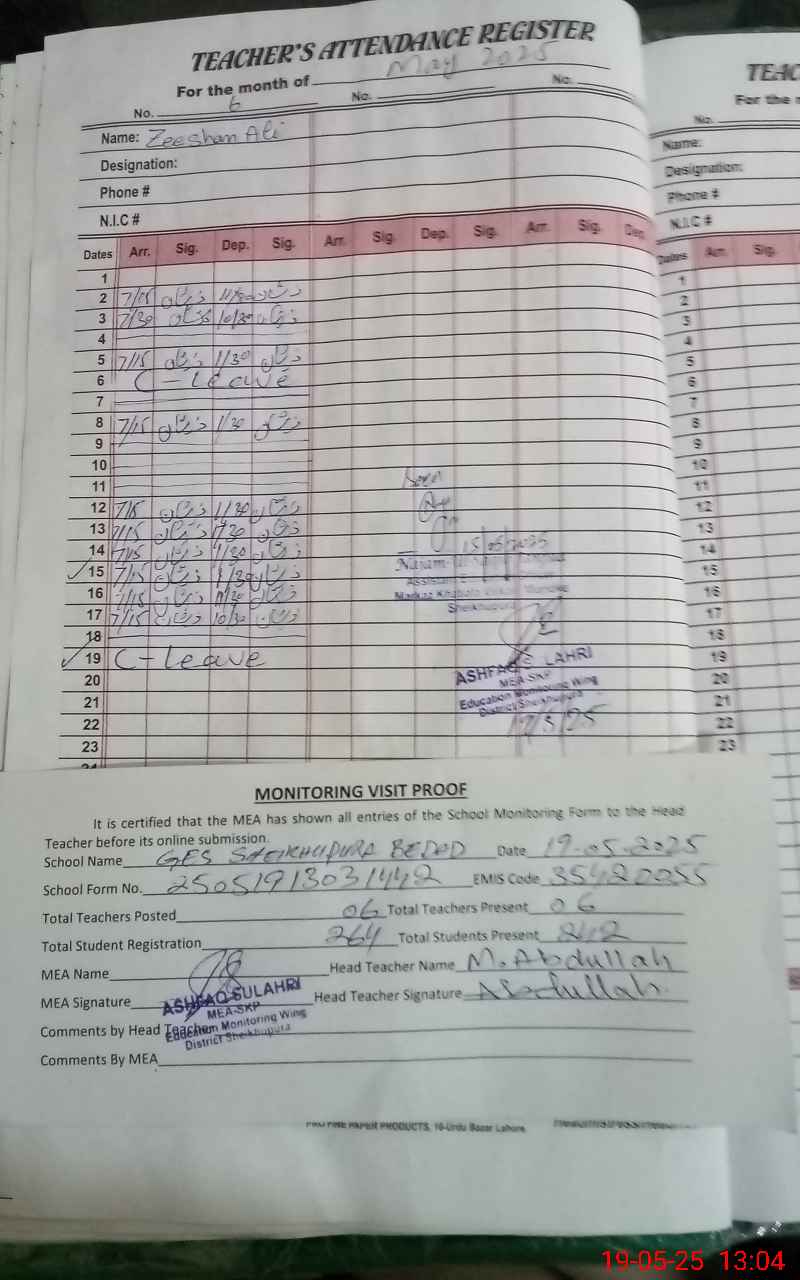 TEACHER'S ATTENDANCE REGISTER
For the month of May 2025
No. 6 No. No.
Name: Zeeshan Ali
Designation:
Phone #
N.I.C #
Dates Arr. Sig. Dep. Sig. Arr. Sig. Dep. Sig. Arr. Sig. Dep.
1
2 7/15 ذیشان ذیشان
3 7/30 ذیشان 10/30 ذیشان
4
5 7/15 ذیشان 1/30 ذیشان
6 C - Leave
7
8 7/15 ذیشان 1/30 ذیشان
9
10
11
12 7/15 ذیشان 1/30 ذیشان
13 7/15 ذیشان 1/30 ذیشان
14 7/15 ذیشان 1/30 ذیشان
15/05/2025
15 7/15 ذیشان 1/30 ذیشان
16 7/15 ذیشان ذیشان
Sheikhupura
17 7/15 ذیشان 10/30 ذیشان
18
19 C - Leave
20
21
22
23
ASHFAQ SULAHRI
MEA-SKP
Education Monitoring Wing
District Sheikhupura
TEAC
For the
No.
Name:
Designation:
Phone #
N.I.C #
Dates Arr. Sig.
1
2
3
4
5
6
7
8
9
10
11
12
13
14
15
16
17
18
19
20
21
22
23
MONITORING VISIT PROOF
It is certified that the MEA has shown all entries of the School Monitoring Form to the Head
Teacher before its online submission.
School Name GES SHEIKHUPURA BEDAD Date 19.05.2025
School Form No. 25051913031442 EMIS Code 35420055
Total Teachers Posted 06 Total Teachers Present 06
Total Student Registration 264 Total Students Present 242
MEA Name Head Teacher Name M. Abdullah
MEA Signature Head Teacher Signature Abdullah
ASHFAQ SULAHRI
MEA-SKP
Education Monitoring Wing
District Sheikhupura
Comments by Head Teacher
Comments By MEA
FINE PAPER PRODUCTS, 16-Urdu Bazar Lahore.
19-05-25 13:04